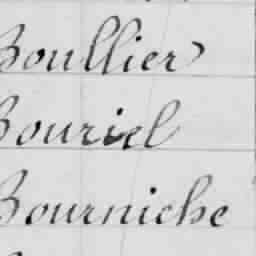 Boullier
Bouriel
Bourniche